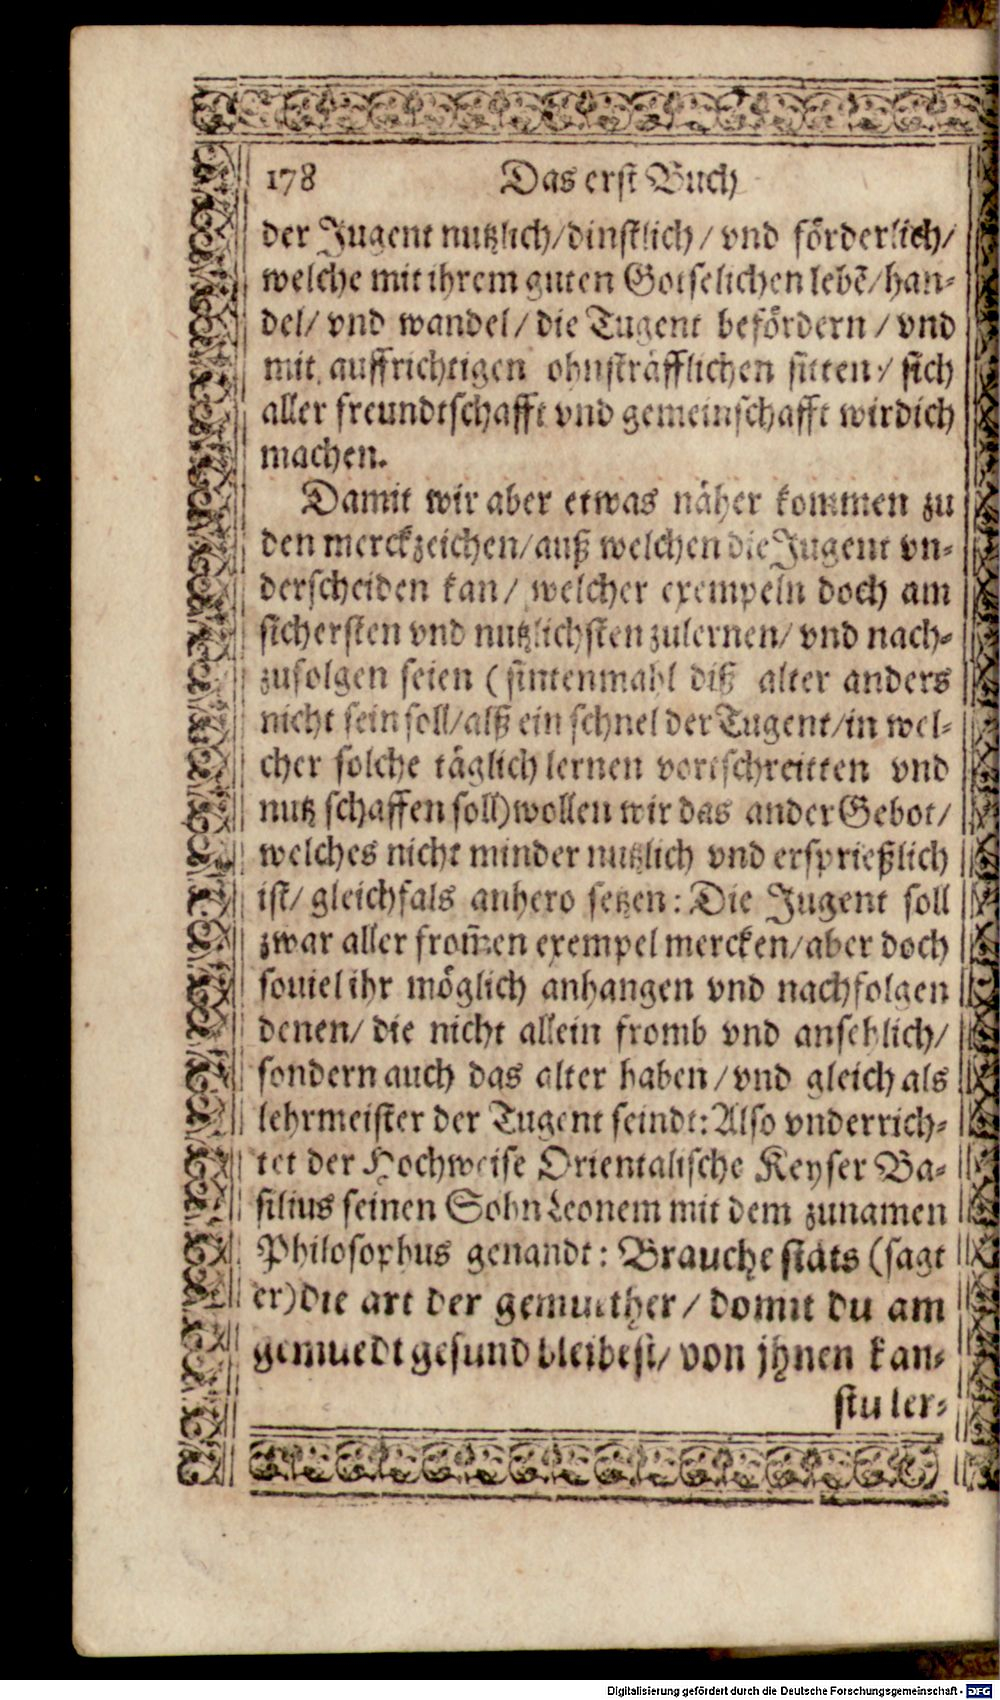 178 Das erst Buch
der Jugent nutzlich/dinstlich / vnd förderlich/
welche mit ihrem guten Gotselichen lebē/han-
del/ vnd wandel/ die Tugent befördern / vnd
mit auffrichtigen ohnsträfflichen sitten/ sich
aller freundtschafft vnd gemeinschafft wirdich
machen.
Damit wir aber etwas näher kommen zu
den merckzeichen/auß welchen die Jugent vn-
derscheiden kan/ welcher exempeln doch am
sichersten vnd nutzlichsten zulernen/ vnd nach-
zufolgen seien ( sintenmahl diß alter anders
nicht sein soll/alß ein schnel der Tugent/in wel-
cher solche täglich lernen vortschreitten vnd
nutz schaffen soll) wollen wir das ander Gebot/
welches nicht minder nutzlich vnd ersprießlich
ist/ gleichfals anhero setzen: Die Jugent soll
zwar aller from̄en exempel mercken/aber doch
souiel ihr möglich anhangen vnd nachfolgen
denen/ die nicht allein fromb vnd ansehlich/
sondern auch das alter haben / vnd gleich als
lehrmeister der Tugent seindt: Also vnderrich-
tet der Hochweise Orientalische Keyser Ba-
silius seinen Sohn Leonem mit dem zunamen
Philosophus genandt: Brauche stäts (sagt
er) die art der gemuether / domit du am
gemuedt gesund bleibest/ von jhnen kan-
stu ler-
Digitalisierung gefördert durch die Deutsche Forschungsgemeinschaft - DFG